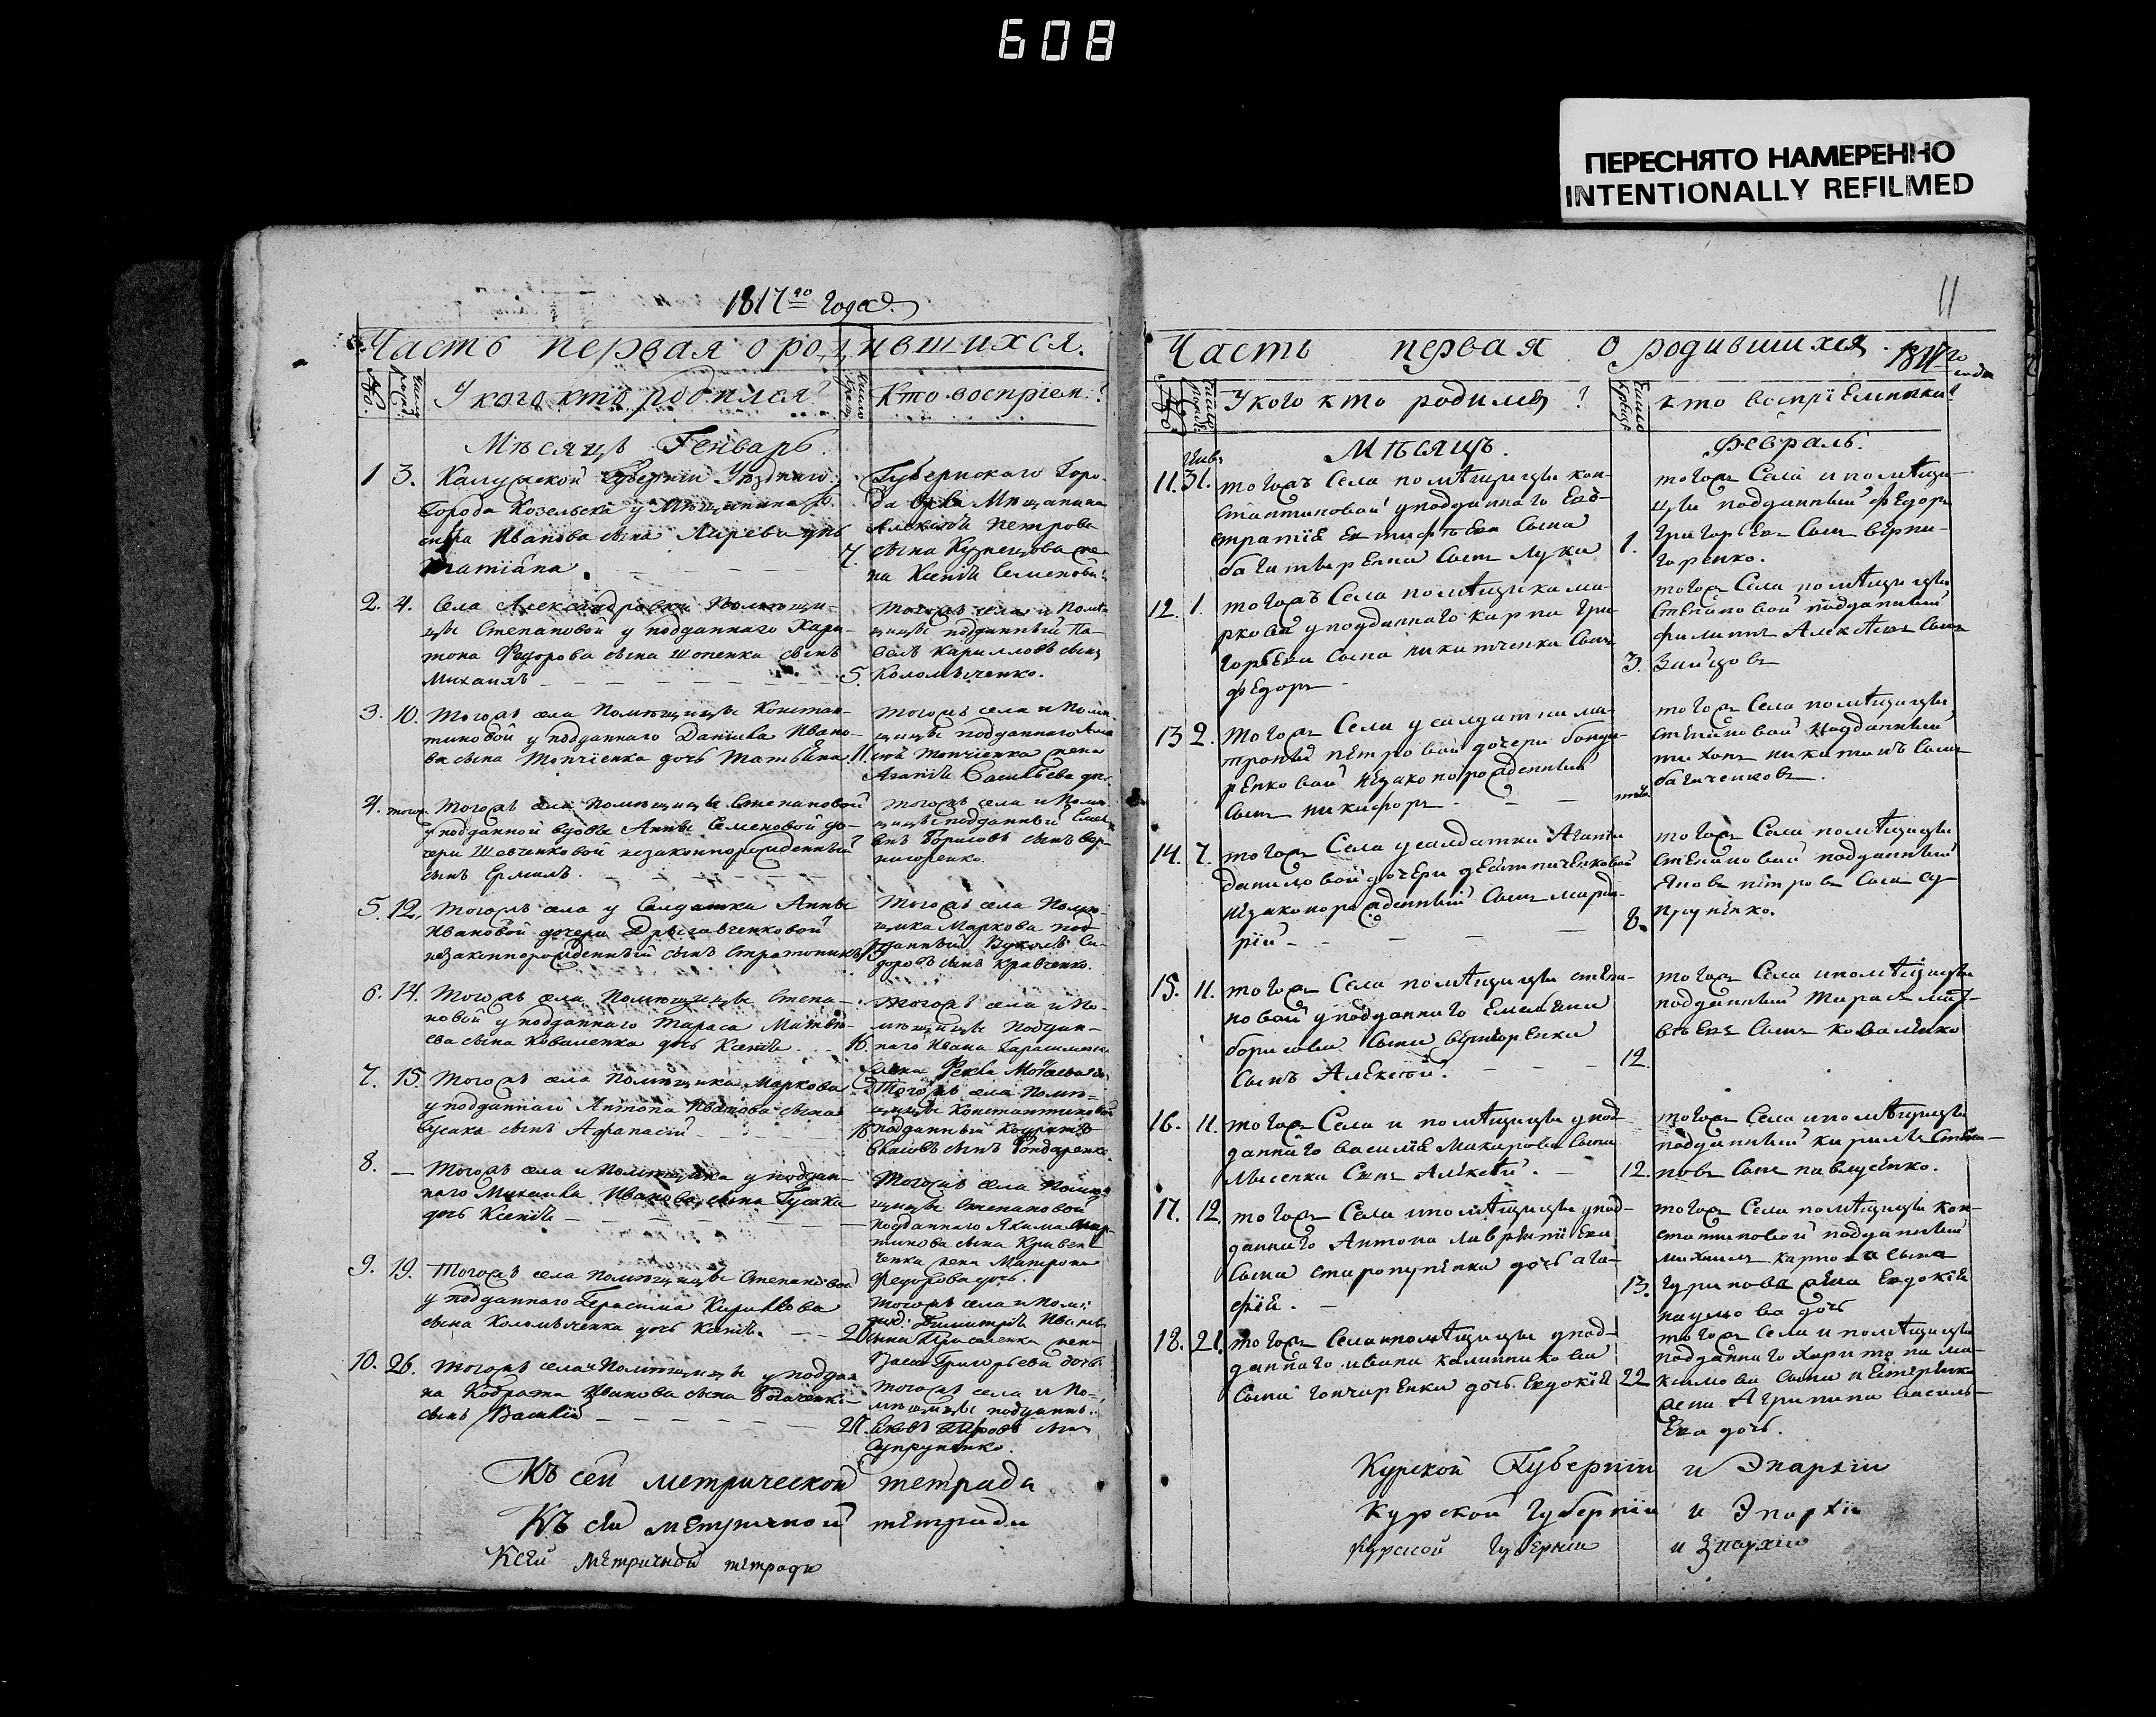 608
ПЕРЕСНЯТО НАМЕРЕННО
INTENTIONALLY REFILMED
1817го года.
Часть первая о родившихся.
У кого кто родился?
Кто восприем.?
Мѣсяцъ Генварь
1 3. Калужской Губернии Уѣзднаго
Города Козельска у Мѣщанина
Иванова сына дочь
Татіана.
7.
Губернскаго Горо-
да Мѣщанина
Алексѣя Петрова
сына Кузнецова же-
на Ксенія Семенова
2. 4. Села Александровки Помѣщи-
цы Степановой у подданнаго Хари-
тона Федорова сына Шопенка сынъ
Михаилъ
5.
Тогожъ села и Помѣ-
щицы подданный Па-
велъ Кирилловъ сынъ
Коломыченко.
3. 10. Тогожъ села Помѣщицы Констан-
тиновой у подданнаго Даніила Ивано-
ва сына Топчіенка дочь Татьяна
11.
Тогожъ села и Помѣ-
щицы подданнаго
Топчіенка жена
Агапія Васильева доч.
4. тогож. Тогожъ села Помѣщицы Степановой
у подданной вдовы Анны Семеновой до-
чери Шевченковой незаконнорожденный
сынъ Ермилъ.
Тогожъ села и Помѣ-
щицы подданный Емель-
янъ Борисовъ сынъ Вер-
нигоренко.
5. 12. Тогожъ села у Солдатки Анны
Ивановой дочери
незаконнорожденный сынъ Стратоникъ
13
Тогожъ села Помѣ-
щика Маркова под-
данный Вуколъ Си-
доровъ сынъ Кравченко.
6. 14. Тогожъ села Помѣщицы Степа-
новой у подданнаго Тараса Матвѣ-
ева сына Коваленка дочь Ксенія
16.
Тогожъ села и По-
мѣщицы Поддан-
наго Ивана
жена Фекла
7. 15. Тогожъ села Помѣщика Маркова
у подданнаго Антона Иванова сына
Гусака сынъ Афанасій
Тогожъ села Помѣ-
щицы Константиновой
подданный Кондратъ
сынъ Бондаренко.
8. — Тогожъ села и Помѣщика у поддан-
наго Михаила Иванова сына Гусака
дочь Ксенія
Тогожъ села Помѣ-
щицы Степановой
подданнаго Якима Мар-
тинова сына Кривен-
ченка жена Матрона
Федорова дочь.
9. 19. Тогожъ села Помѣщицы Степановой
у подданнаго Герасима Кирилова
сына Коломыченка дочь Ксенія.
Тогожъ села и Помѣ:
под: Димитрія Иванова
сына жена
Григорьева дочь.
10. 26. Тогожъ села и Помѣщицы у поддан-
на Кодрата Иванова сына Богаченка
сынъ Василій
27.
Тогожъ села и По-
мѣщицы подданны.
Яковъ Петровъ сынъ
Супруненко.
Къ сей метрической тетради
Къ сей метричной тетради
Ксей метричной тетради
11
Часть первая о родившихся. 1817го года
У кого кто родился?
кто воспріемники?
Мѣсяцъ.
Февраль.
11. 31. тогожъ Села помѣщицы кон-
стантиновой у подданнаго Евъ-
стратіѣ Евтифѣева Сына
багатыренка Сынъ Лука
1.
тогожъ Села и помѣщи-
цы подданный Федоръ
Григорьевъ Сынъ верни-
горенко.
12. 1. тогожъ Села помѣщика ма-
ркова у подданнаго карпа Гри-
горьева Сына никитченка Сынъ
федоръ
3.
тогожъ Села помѣщицы
Степановой подданный
филиппъ Алексѣевъ Сынъ
Зайцовъ
13 2. Тогожъ Села у солдатки ма-
троны петровой дочери бонда-
ренковой незаконорожденный
Сынъ никифоръ
тогожъ Села помѣщицы
степановой подданный
тихонъ никитинъ Сынъ
багаченковъ.
14. 7. тогожъ Села у солдатки Агапіи
даниловой дочери
незаконорожденный Сынъ марда-
рій
8.
тогожъ Села помѣщицы
степановой подданный
Яковъ петровъ Сынъ Су
пруненко.
15. 11. тогожъ Села помѣщицы степа-
новой у подданнаго Емельяна
борисова Сына вернигоренка
Сынъ Алексѣй.
12.
тогожъ Села и помѣщицы
подданный Тарасъ мат-
вѣевъ Сынъ коваленко
16. 11. тогожъ Села и помѣщицы у под-
даннаго василіѣ Макарова Сына
Лысенка Сынъ Алексѣй.
12.
тогожъ Села и помѣщицы
подданный кирилъ Степа-
новъ Сынъ павлусенко.
17. 12. тогожъ Села и помѣщицы у под-
даннаго Антона лаврентіева
Сына старопупенка дочь ага-
фія.
13.
тогожъ Села помѣщицы кон-
стантиновой подданный
михаила карпова сына
гуринова жена Евдокія
наумова дочь
18. 21. тогожъ Села и помѣщицы у под-
даннаго ивана калинникова
Сына гончаренка дочь Евдокія
22
тогожъ Села и помѣщицы
подданнаго Харитона ма-
ксимова Сына нестеренка
жена Агрипина василь-
ева дочь.
Курской Губерніи и Эпархіи
Курской Губерніи и Эпархіи
Курской Губерніи и Эпархіи